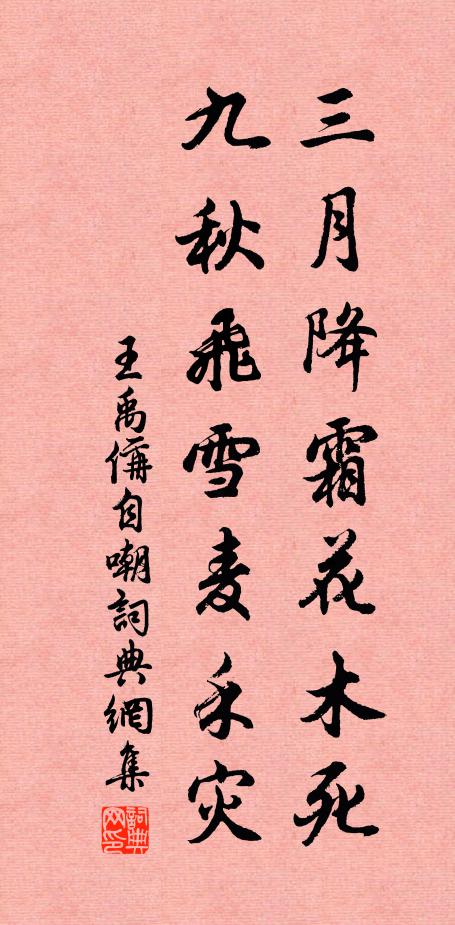 三月降霜花木死
九秋飛雪麦禾灾
王禹偁自嘲詞典網集
詞典网印